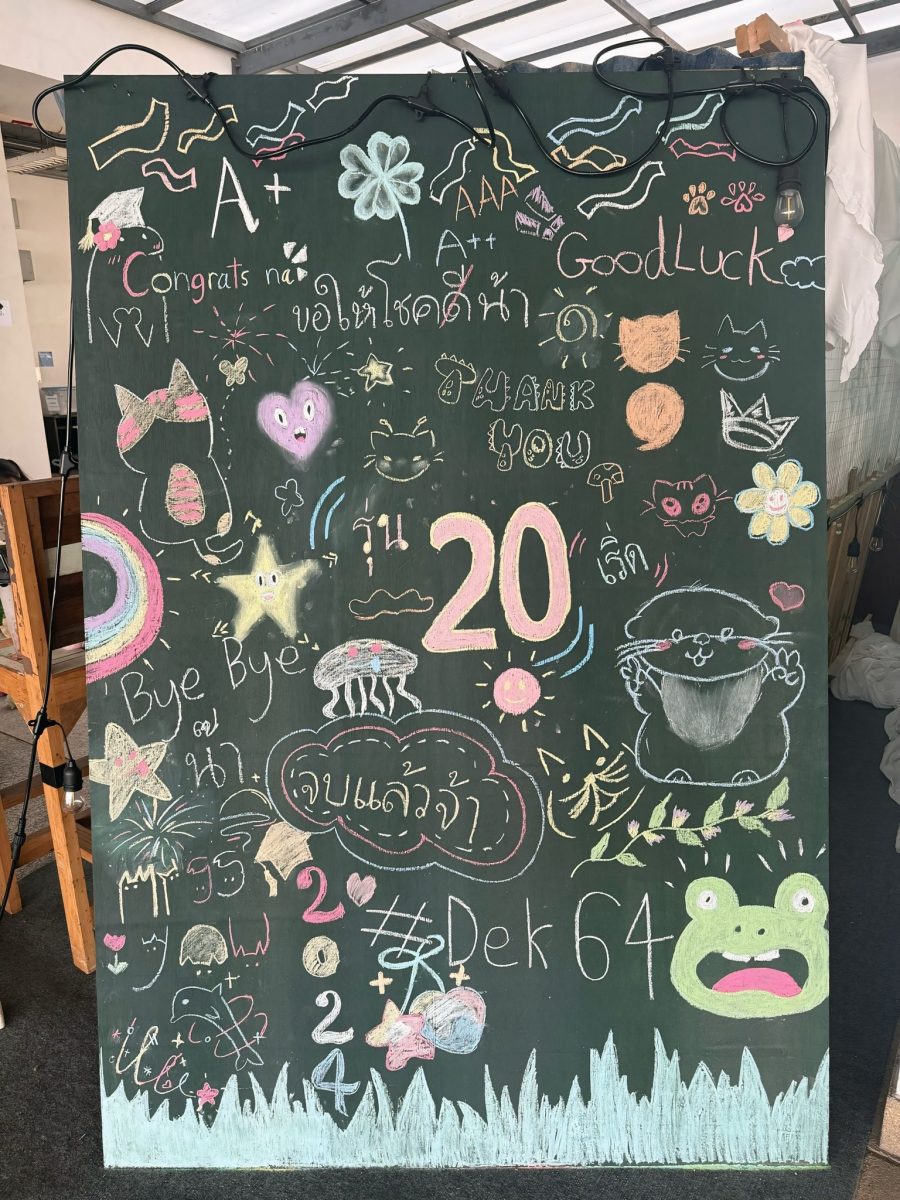 A+
AAA
A++
Congrats na
GoodLuck
ขอให้โชคดีน้า
THANK
YOU
รุ่น
20
เริ่ด
Bye Bye
น้า
จบแล้วจ้า
2
0
2
4
#Dek64